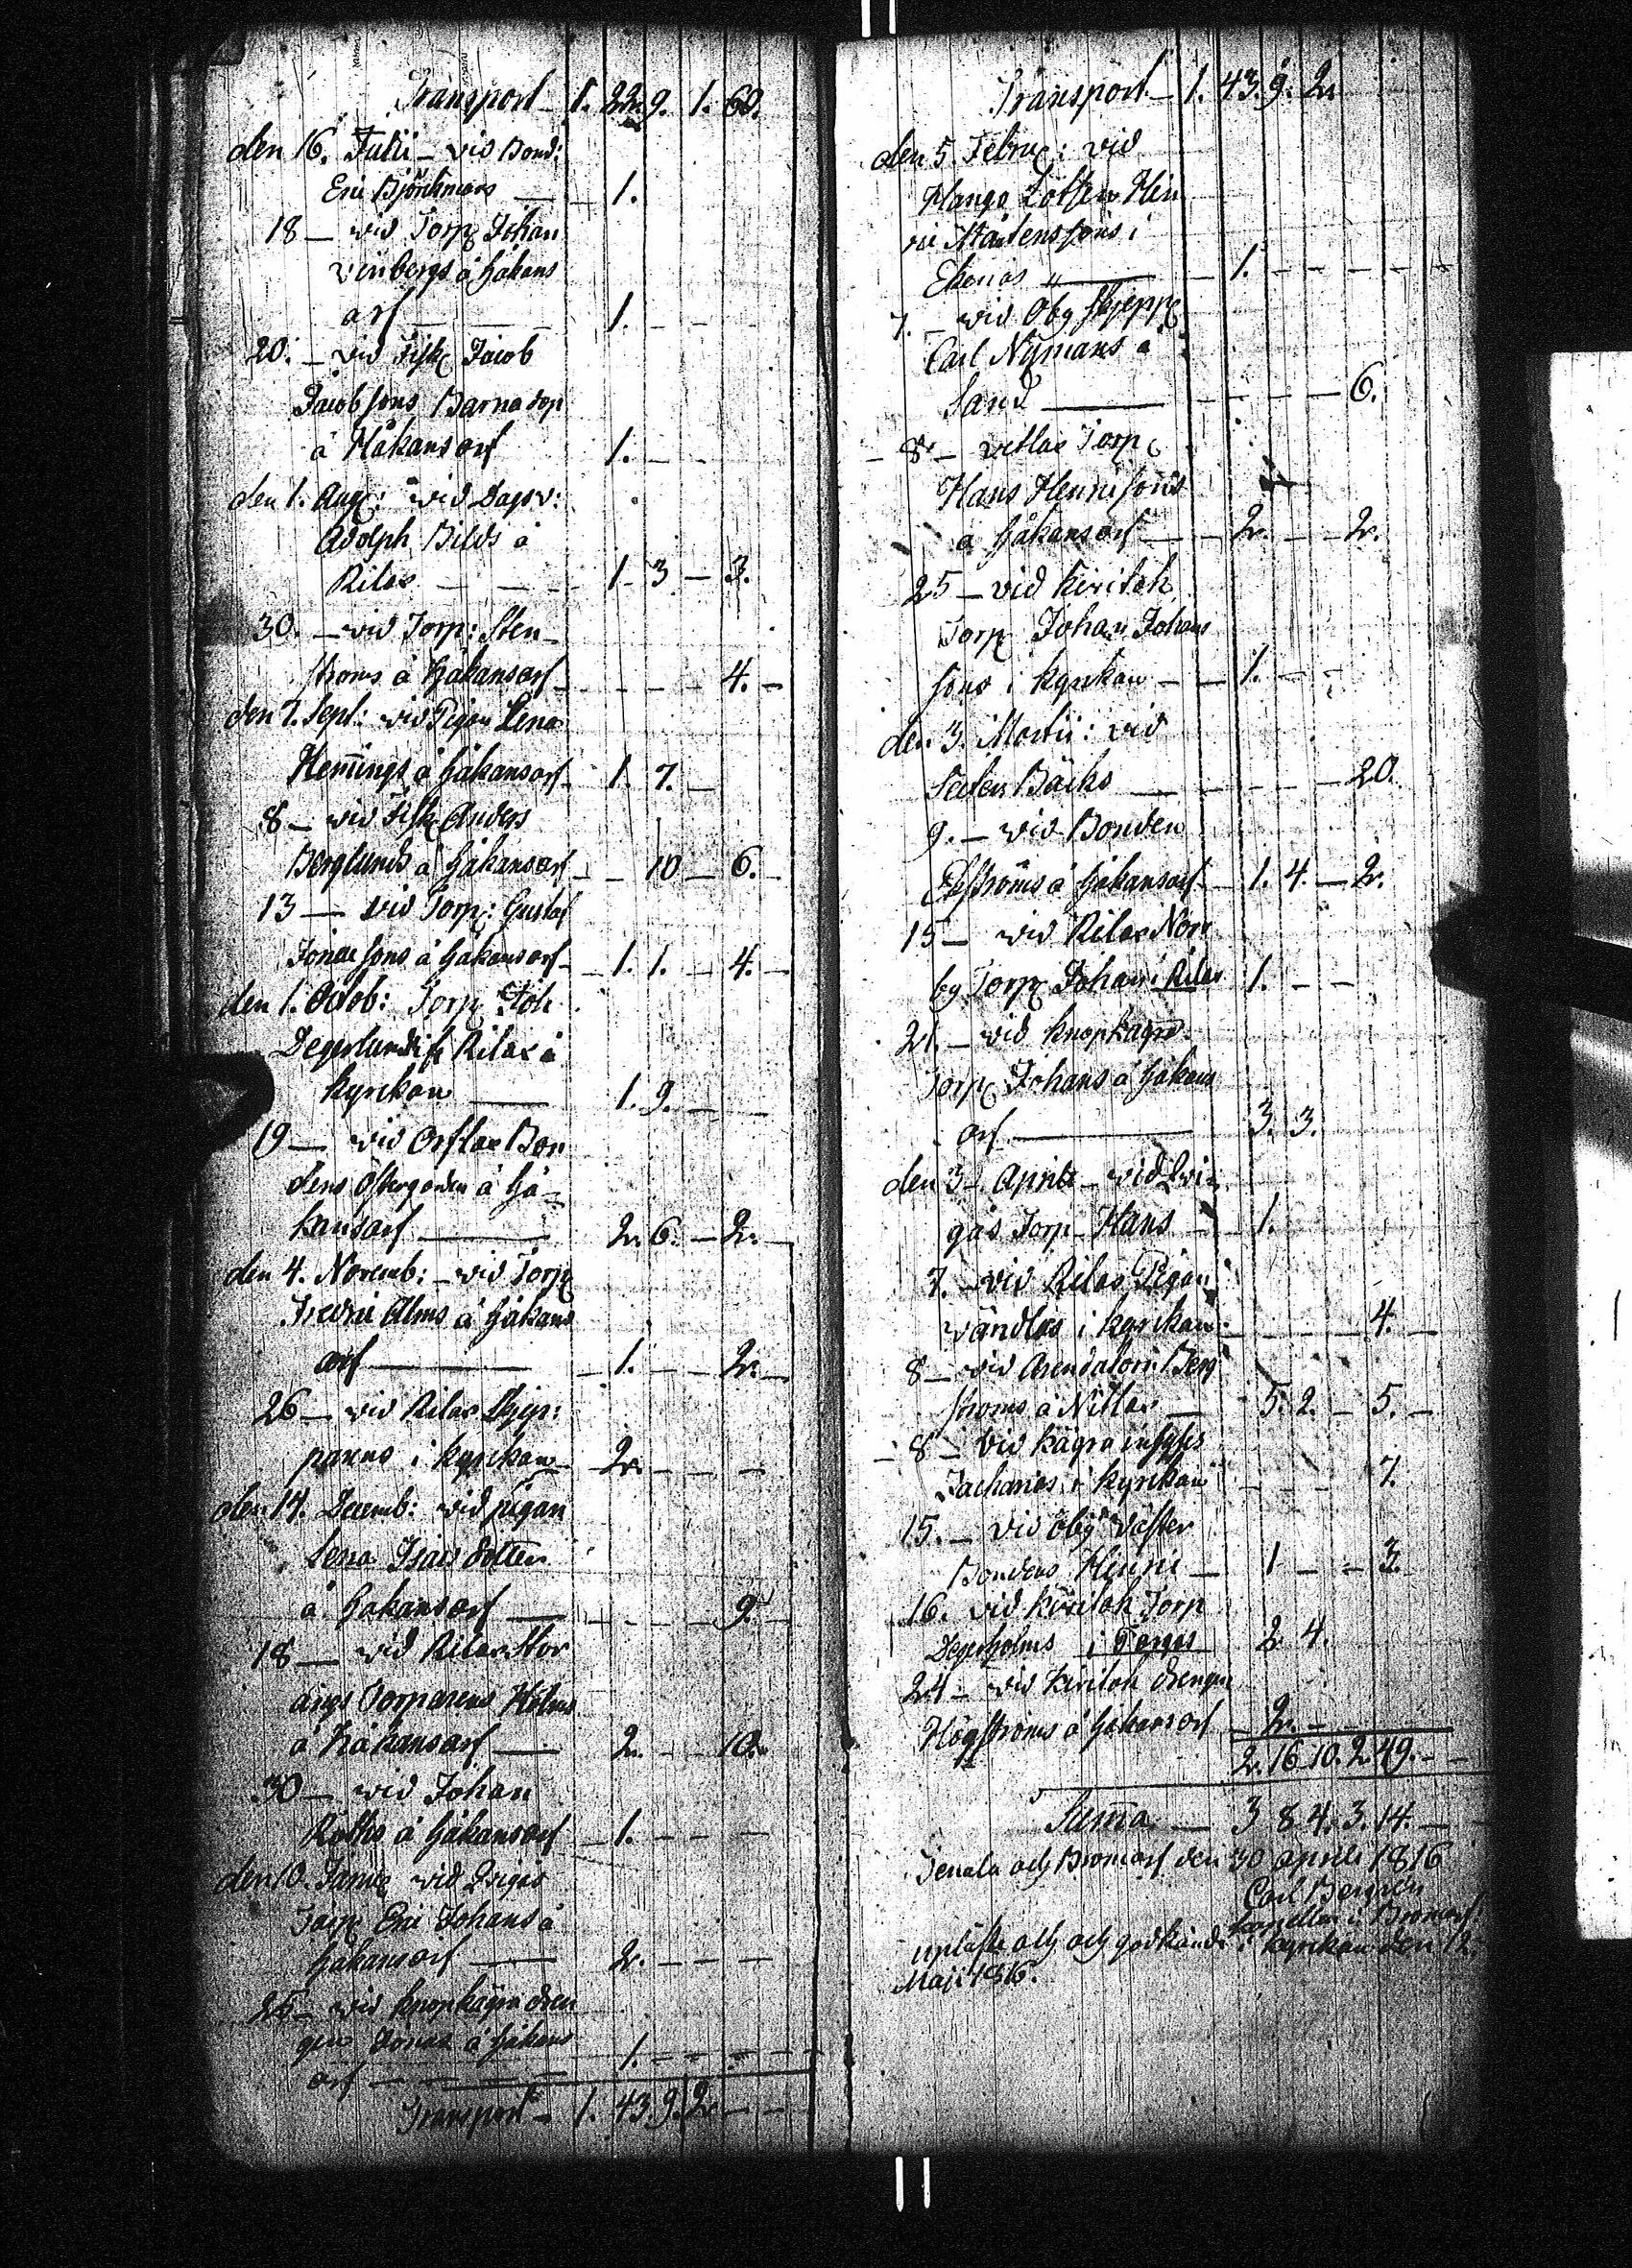 Transport – 1. 22. 9. 1. 60.
den 16. Julii – vid Bond:
Eric Björkmans — 1.
18 – vid Torp Johan
Vinbergs å Håkans
arf — 1. – – –
20. – vid Fisk Jacob
Jacobsons Barnadop
å Håkansarf 1. – –
den 1. Aug: vid Dagsv:
Adolph Bilds å
Rilax – – – 1 – 3 – 3.
30. – vid Torp: Sten–
ströms å Håkansarf – – – – 4. –
den 7. Sept: vid Pigan Lena
Hemings å Håkansarf 1. 7. –
8 – vid Fisk Anders
Berglunds å Håkansarf – – 10 – 6. –
13 — vid Torp: Gustaf
Jonaesons å Håkansarf – – 1. 1. – 4. –
den 1. Octob: Torp Joh
Degerlunds Rilax i
kyrkan — 1. 9. – –
19 — vid Orslax Bon
dens Östergården å Hå–
kansarf — 2. 6. – 2. –
den 4. Novemb: – vid Torp
Fredric Alms å Håkans
arf — – 1. – – 2. –
26 — vid Rilax Skjep:
parens i kyrkan – 2. – – –
den 14. Decemb: vid pigan
Lena Isacsdotter
å Håkansarf — – – – – 9. –
18 — vid Rilax Stor
ängs Torparens Holms
å Håkansarf — 2. – – 10.
30 — vid Johan
Roths å Håkansarf – 1. – – –
den 10. Janu: vid
Torp Eric Johans å
Håkansarf — 2. – – –
25 – vid Knopkägra dren
gen Jonas å Håkans
arf – – – – 1. – – – –
Transport – 1. 43. 9. 2. – –
Transport – 1. 43. 9. 2.
den 5. Febru: vid
Manga Lotten Hen
ric Mårtenssons i
Ekenäs — – 1. – – – – –
7. – vid Öby Skjepp
Carl Nymans å
Sand — – – – – 6.
– 8. – vettlax Torp
Hans Henricsons
å Håkansarf – – 2. – – 2.
25 – vid Kivitok
Torp Johan Johans
sons i kyrkan – – 1. – –
den 3. Martii: vid
Bäcks — – – – 20.
9. – vid Bonden
Ekströms å Håkansarf – 1. 4. – 2.
15 – vid Rilax Norr
by Torp Johan i Rilax 1. – –
21. – vid Knopkägra
Torp Johans å Håkans
arf — 3. 3.
den 3 – April – vid
gås Torp Hans – 1.
7. – vid Rilax Pigan
Vändlas i kyrkan – – – – 4. –
8 – vid Arendatorn Berg
ströms å Nitlax – 5. 2. – 5. –
– 8 – vid Kägra inhyses
Zacharias i kyrkan – – – 7.
15. – vid Öby Väster
Bondens Henric – 1 – – 3.
16. vid Kivitok Torp
Degerholms i Torpet 2. 4.
24 – vid Kivitok drengen
Högströms å Håkansarf – 2. –
2. 16. 10. 2. 49. – –
Suma — 3 8 4. 3. 14. –
Tenala och Bromarf den 30 April 1816
Carl Bergren
kapellan i Bromarf
upläst och och godkänd i kyrkan den 12.
Maji 1816.